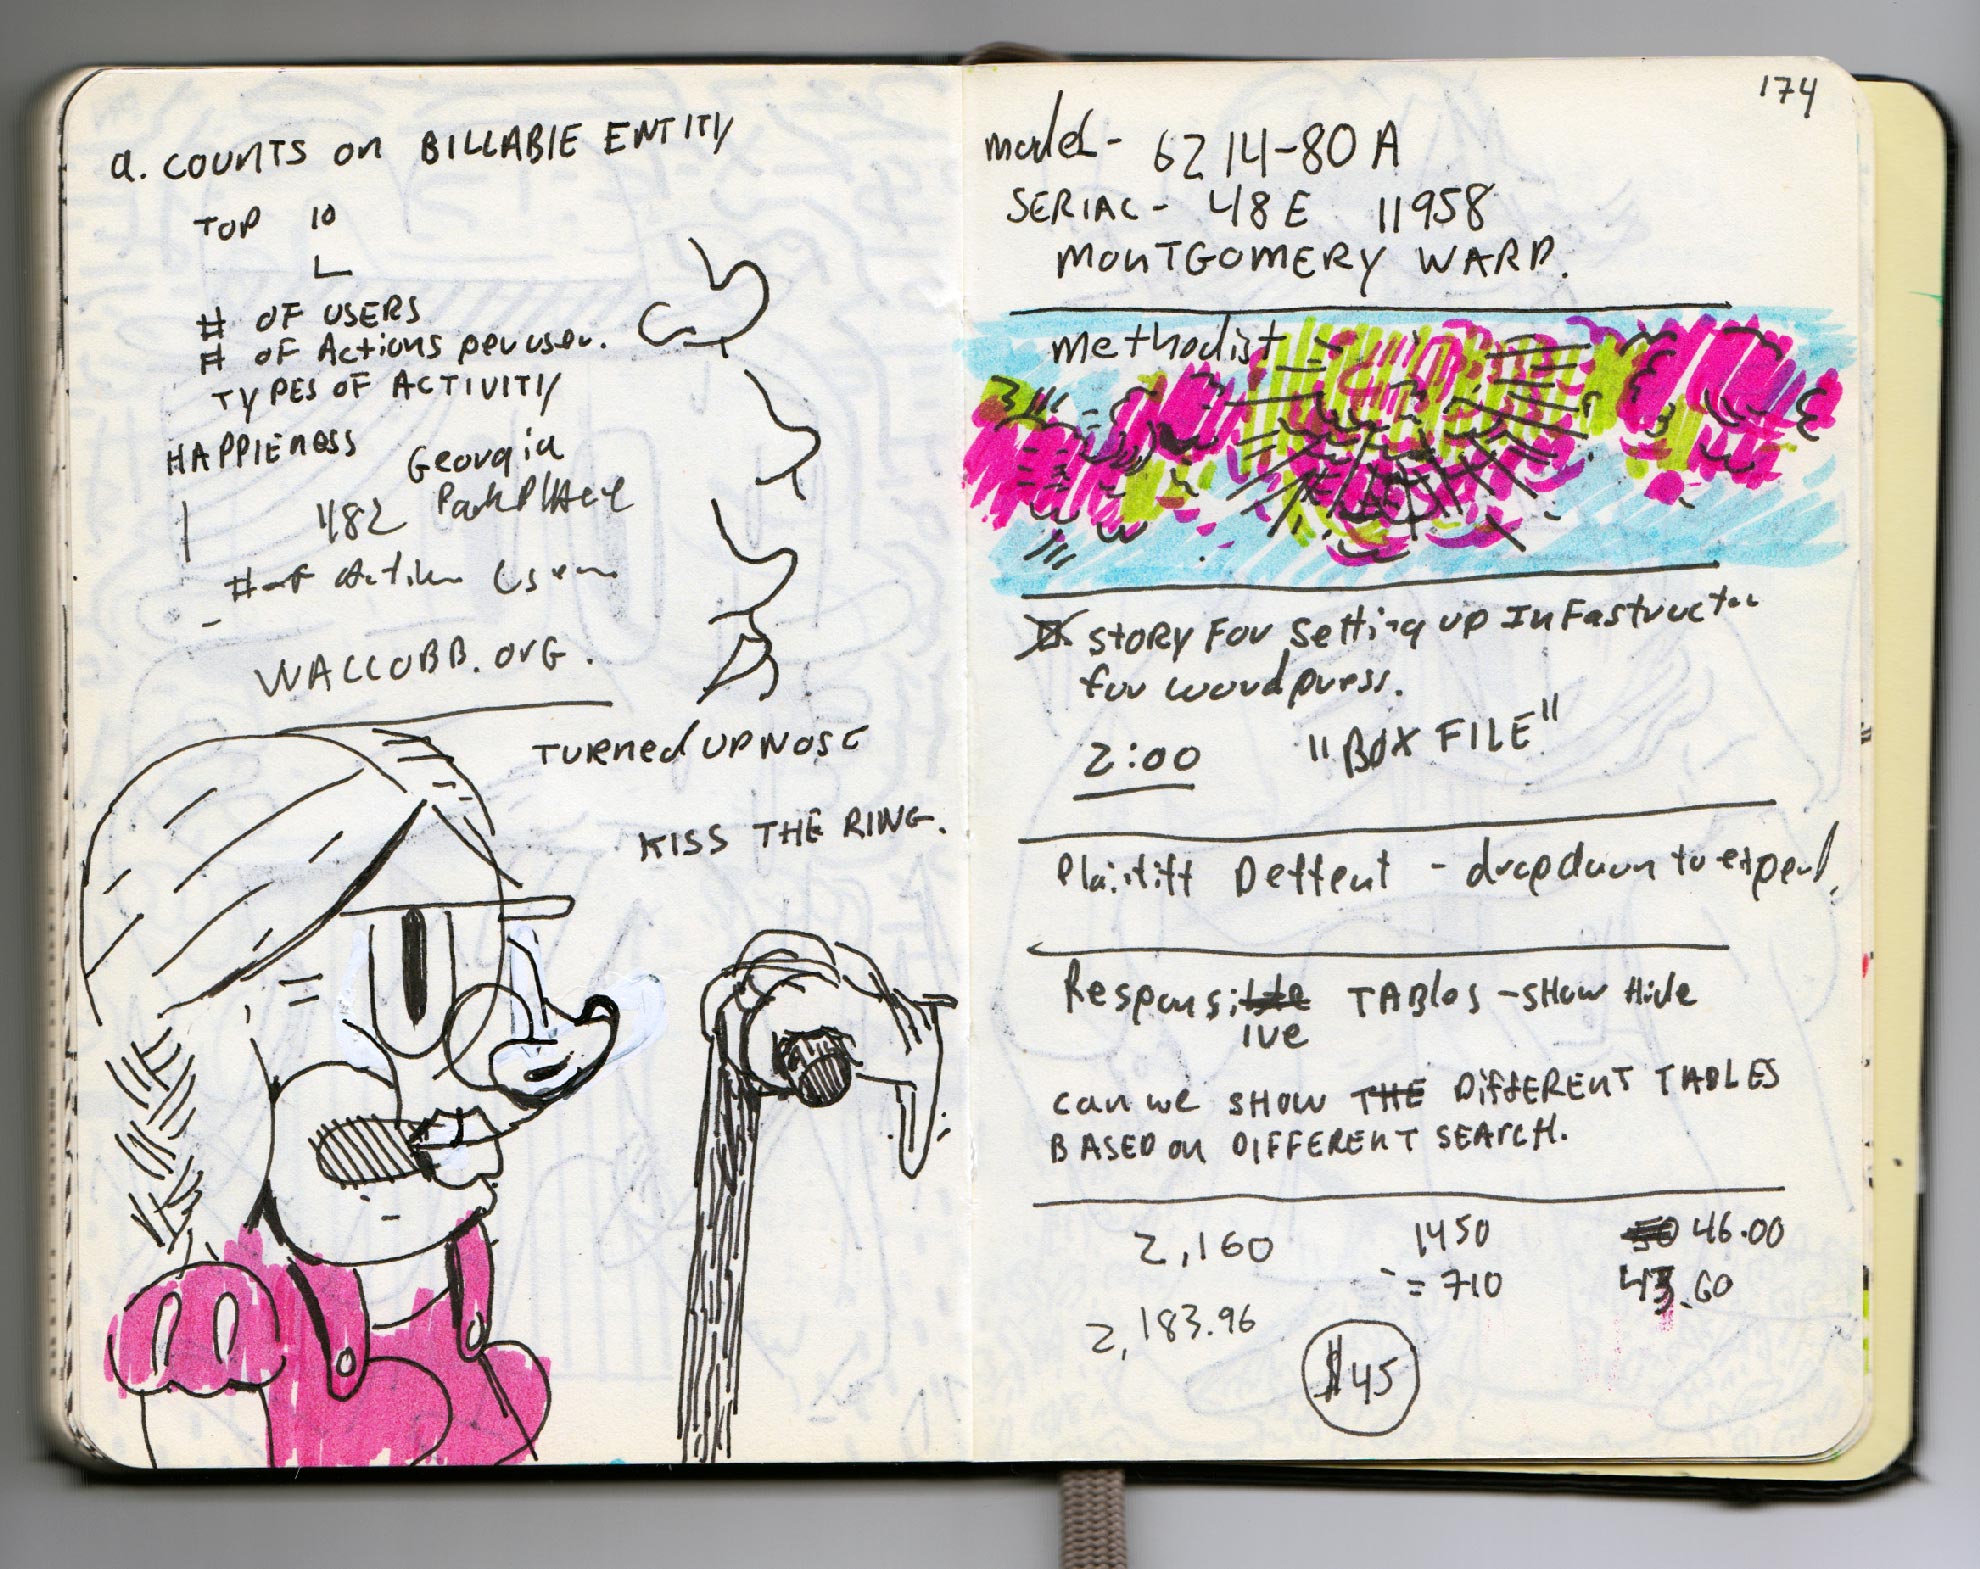 a. COUNTS on BILLABlE ENTITY
TOP 10
# OF USERS
# OF Actions per user.
TYPES OF ACTIVITY
HAPPIENESS
Georgia
1182 ParkPlAce
# of Action
WALLOBB.ORG.
TURNEd UP NOSE
KISS THE RING.
174
model - 6214-80A
SERIAL - 48E 11958
MONTGOMERY WARD.
methodist
STORY FOR Setting up InFastructor
for wordpress.
2:00 "BOX FILE"
- dropdown to expand.
Responsi
ive TABlES - SHOW Hide
can we SHOW THE DiffERENT TABLES
BASED on DIFFERENT SEARCH.
2,160 1450 46.00
= 710 43.60
2,183.96
$45